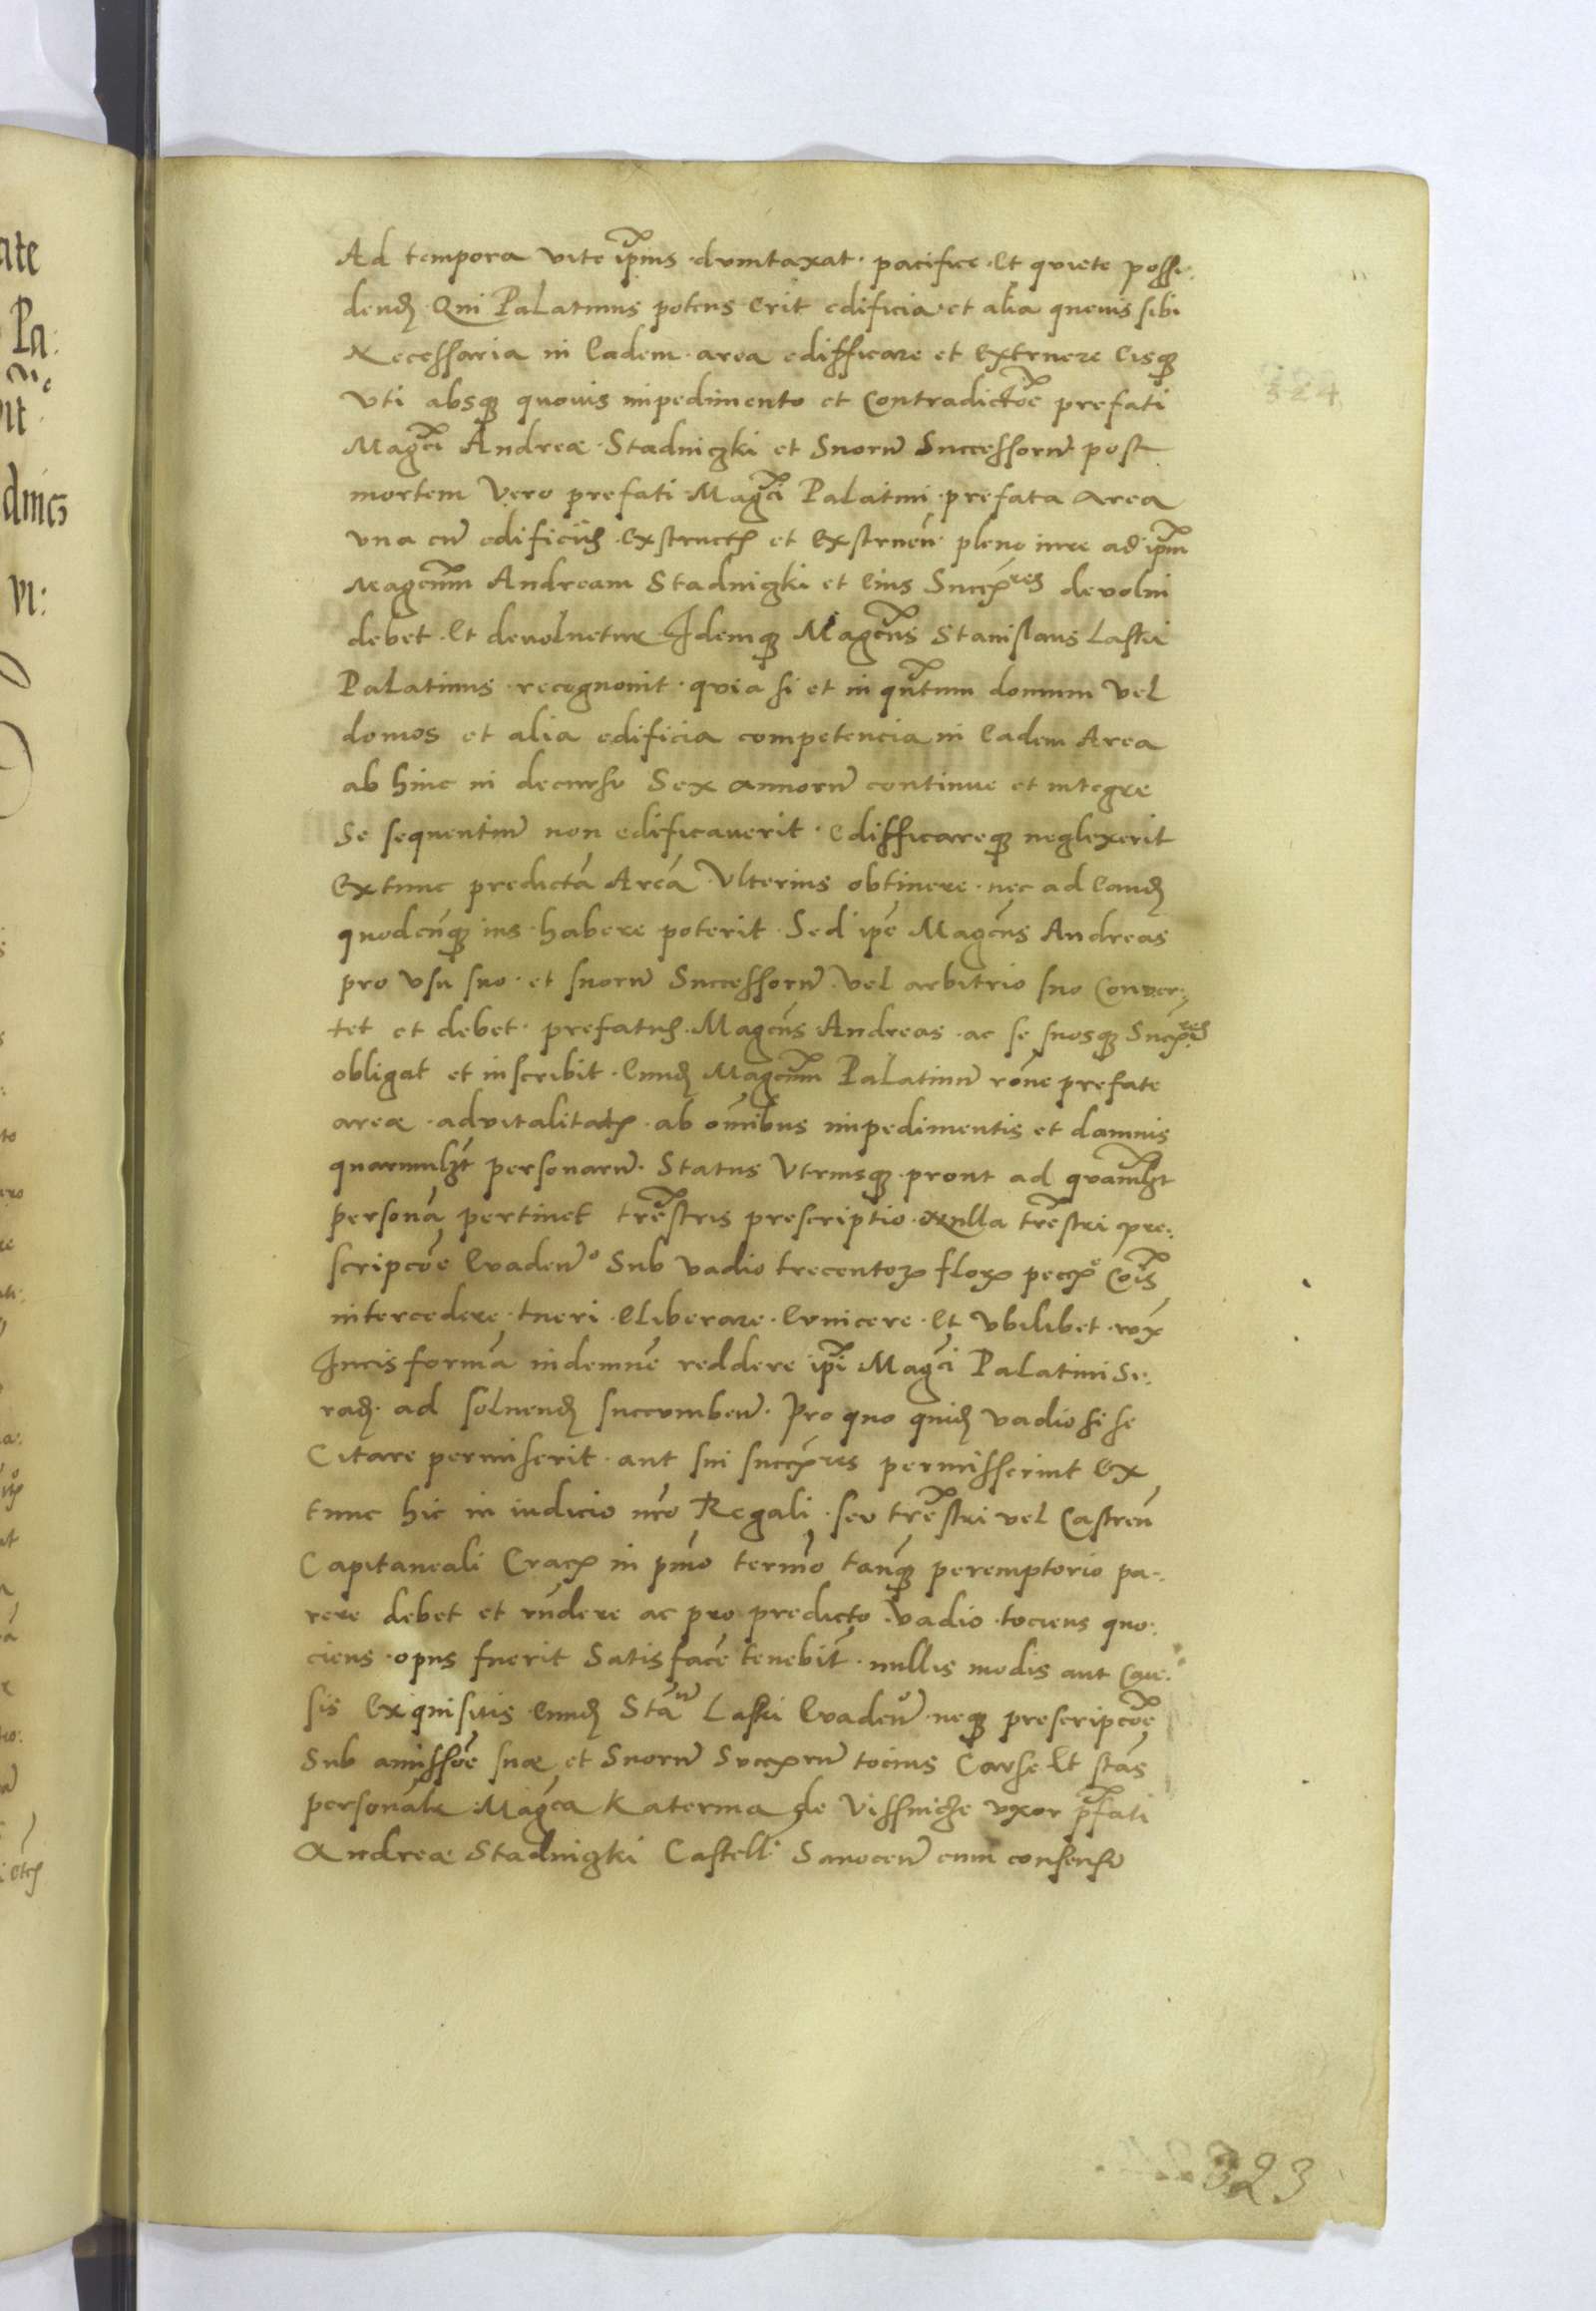 Ad tempora vite ip̄ius duntaxat pacifice et quiete posse-
dend̄ Qui Palatinus potens erit edificia et alia quevis sibi
Necessaria in eadem area edifficare et extruere eisq̄
Vti absq̄ quovis impedimento et Contradictōe prefati
Maḡci Andreæ Stadniczki et Suorū Successorū post
mortem Vero prefati Maḡci Palatini prefata area
vna cū edificiis exstructȩ et exstruen̄ pleno iure ad ip̄m
Magcn̄m Andream Stadniczki et eius Succȩres devolui
debet et devoluetur Idemq̄ Magcn̄s Stanislaus Laski
Palatinus recognovit quia si et in qn̄tum domum vel
domos et alia edificia competencia in eadem Area
ab hinc in decursu Sex annorū continue et integre
Se sequentiū non edificaverit edifficareq̄ neglexerit
Extunc predictā Areā Vlterius obtinere nec ad eand̄
quodcūq̄ ius habere poterit Sed ipē Magcūs Andreas
pro vsu suo et suorū Successorū vel arbitrio suo Conver-
tet et debet prefatus Magcūs Andreas ac se suosq̄ Succȩres
obligat et inscribit eund̄ Magcn̄m Palatinū rōne prefate
areæ advitalitatȩ ab om̄ibus impedimentis et damnis
quarumlȝt personarū Status Vtriusq̄ prout ad quamlȝt
personā pertinet trēstris prescriptio nulla trēstri pre-
scripcōe evadenᵒ Sub vadio trecentoꝝ floꝝ peccȩᵉ Cōis
intercedere tueri eliberare evincere et vbilibet iux̄
Iuris formā indemnē reddere ip̄i Maḡci Palatini Si-
rad̄ ad soluend̄ succumben̄ Pro quo quid̄ vadio si se
Citare permiserit aut sui succȩres permisserint Ex
tunc hic in iudicio nr̄o Regali seu trēstri vel Castren̄
Capitaneali Cracȩ in pm̄o termō tanq̄ peremptorio pa-
rere debet et rn̄dere ac pro predicto vadio tociens quo-
ciens opus fuerit Satisfacē tenebit̄ nullis modis aut Cau-
sis exquisitis eund̄ Stāū Laski Evadenᵒ neq̄ prescripcōe
Sub amissōe suæ et Suorū Succȩrū tocius Cause Et stās
personalr̄ Magcā Katerina de Vissnicze vxor p̄fati
Andreæ Stadniczki Castelli Sanocen̄ cum consensu
324
323